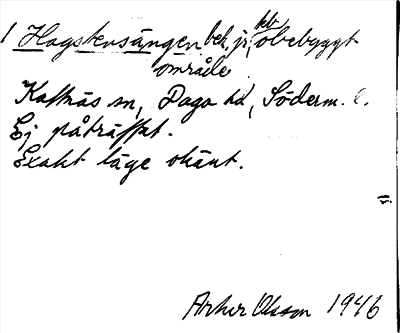 1 Hagstensängen bek. jr, kb obebyggt
område
Kattnäs sn, Daga hd, Söderm. l.
Ej påträffat.
Exakt läge okänt.
=
Arthur Olsson 1946